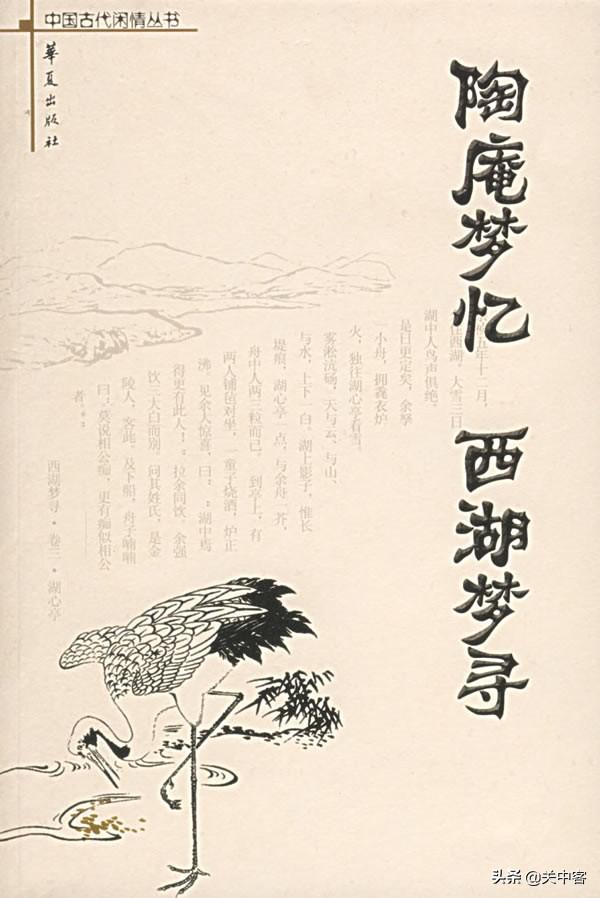 中国古代闲情丛书
華夏出版社
陶庵梦忆 西湖梦寻
五年十二月，
西湖。大雪三日
湖中人鸟声俱绝。
是日更定矣，余
小舟，拥毳衣炉
火，独往湖心亭看雪。
雾凇沆砀，天与云、与山、
与水，上下一白。湖上影子，惟长
堤一痕，湖心亭一点，与余舟一芥，
舟中人两三粒而已。到亭上，有
两人铺毡对坐，一童子烧酒，炉正
沸。见余大惊喜，曰：“湖中焉
得更有此人！”拉余同饮。余强
饮三大白而别。问其姓氏，是金
陵人，客此。及下船，舟子喃喃
曰：“莫说相公痴，更有痴似相公
者。”
西湖梦寻·卷三·湖心亭
头条 @关中客